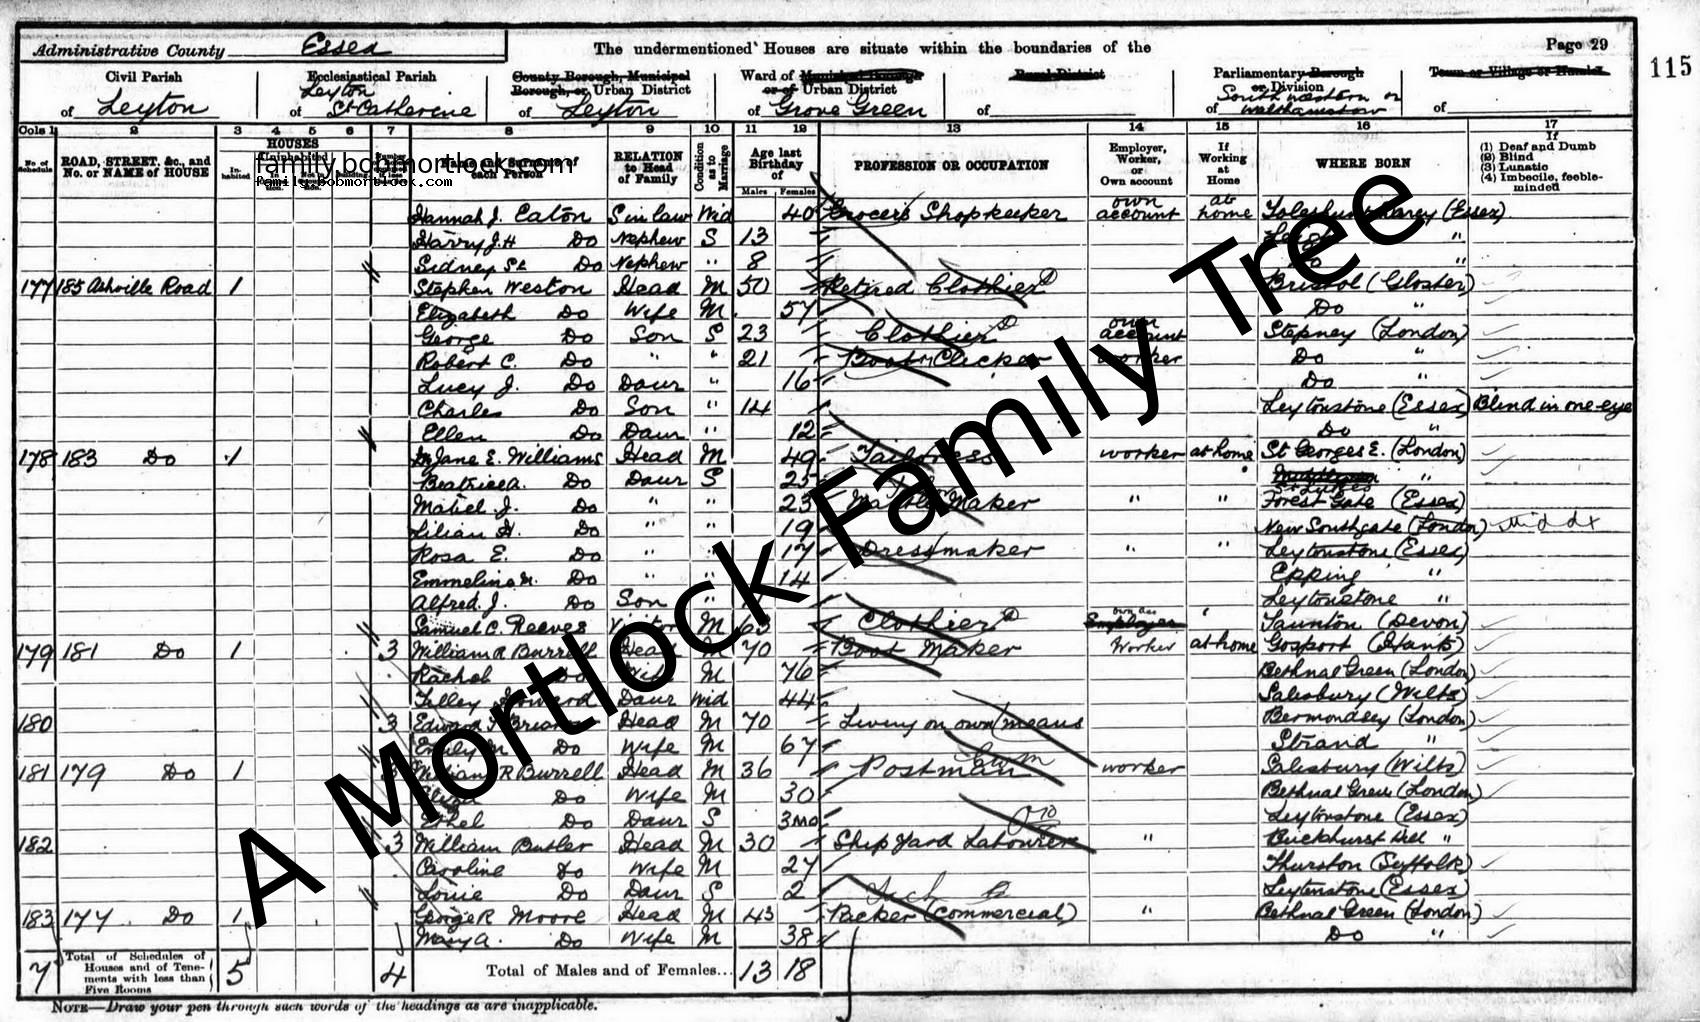 Administrative County Essex
The undermentioned Houses are situate within the boundaries of the
Page 29
115
Civil Parish
of Leyton
Ecclesiastical Parish
Leyton
of St Catherine
County Borough, Municipal
Borough, or Urban District
of Leyton
Ward of Municipal Borough
or of Urban District
of Grove Green
Rural District
of
Parliamentary Borough
or Division
of South Western or Walthamstow
Town or Village or Hamlet
of
Cols 1 2 3 4 5 6 7 8 9 10 11 12 13 14 15 16 17
No of Schedule
ROAD, STREET, &c., and No. or NAME of HOUSE
HOUSES
Inhabited
Uninhabited
family.bobmortlock.com
family.bobmortlock.com
Name and Surname of each Person
RELATION to Head of Family
Condition as to Marriage
Age last Birthday of
Males Females
PROFESSION OR OCCUPATION
Employer, Worker, or Own account
If Working at Home
WHERE BORN
If
(1) Deaf and Dumb
(2) Blind
(3) Lunatic
(4) Imbecile, feeble-minded
Hannah J. Eaton S in law Wid 40 Grocers Shopkeeper own account at home (Essex)
Harry J. H Do Nephew S 13 "
Sidney Do Nephew " 8 Do "
177 185 Ashville Road 1 Stephen Weston Head M 50 Retired Clothier Bristol (Gloster)
Elizabeth Do Wife M 57 Do "
George Do Son S 23 Clothier own account Stepney (London)
Robert C. Do " " 21 Boot Clicker worker Do "
Lucy J. Do Daur " 16 Do "
Charles Do Son " 14 Leytonstone (Essex) Blind in one eye
Ellen Do Daur " 12 Do "
178 183 Do 1 Jane E. Williams Head M 49 Tailoress worker at home St Georges E. (London)
Beatrice A. Do Daur S 25 "
Mabel J. Do " " 23 Maker " " Forest Gate (Essex)
Lilian H. Do " " 19 New Southgate (London) Middx
Rosa E. Do " " 17 Dressmaker " " Leytonstone (Essex)
Emmeline Do " " 14 Epping "
Alfred. J. Do Son " Leytonstone "
Samuel C. Reeves Visitor M 63 Clothier own acc Employer Taunton (Devon)
179 181 Do 1 3 William R Burrell Head M 70 Boot Maker Worker at home Gosport (Hants)
Rachel Do Wife M 76 Bethnal Green (London)
Tilley Daur Wid 44 Salisbury (Wilts)
180 3 Edward Head M 70 Living on own means Bermondsey (London)
Emily M Do Wife M 67 Strand "
181 179 Do 1 3 William R Burrell Head M 36 Postman worker Salisbury (Wilts)
Do Wife M 30 Bethnal Green (London)
Ethel Do Daur S 3mo Leytonstone (Essex)
182 3 William Butler Head M 30 Ship Yard Labourer " Buckhurst Hill "
Caroline Do Wife M 27 Thurston (Suffolk)
Louie Do Daur S 2 Leytonstone (Essex)
183 177 Do 1 George R Moore Head M 43 Packer (Commercial) " Bethnal Green (London)
Mary A. Do Wife M 38 Do "
7 Total of Schedules of Houses and of Tenements with less than Five Rooms 5 4 Total of Males and of Females... 13 18
NOTE—Draw your pen through such words of the headings as are inapplicable.
A Mortlock Family Tree